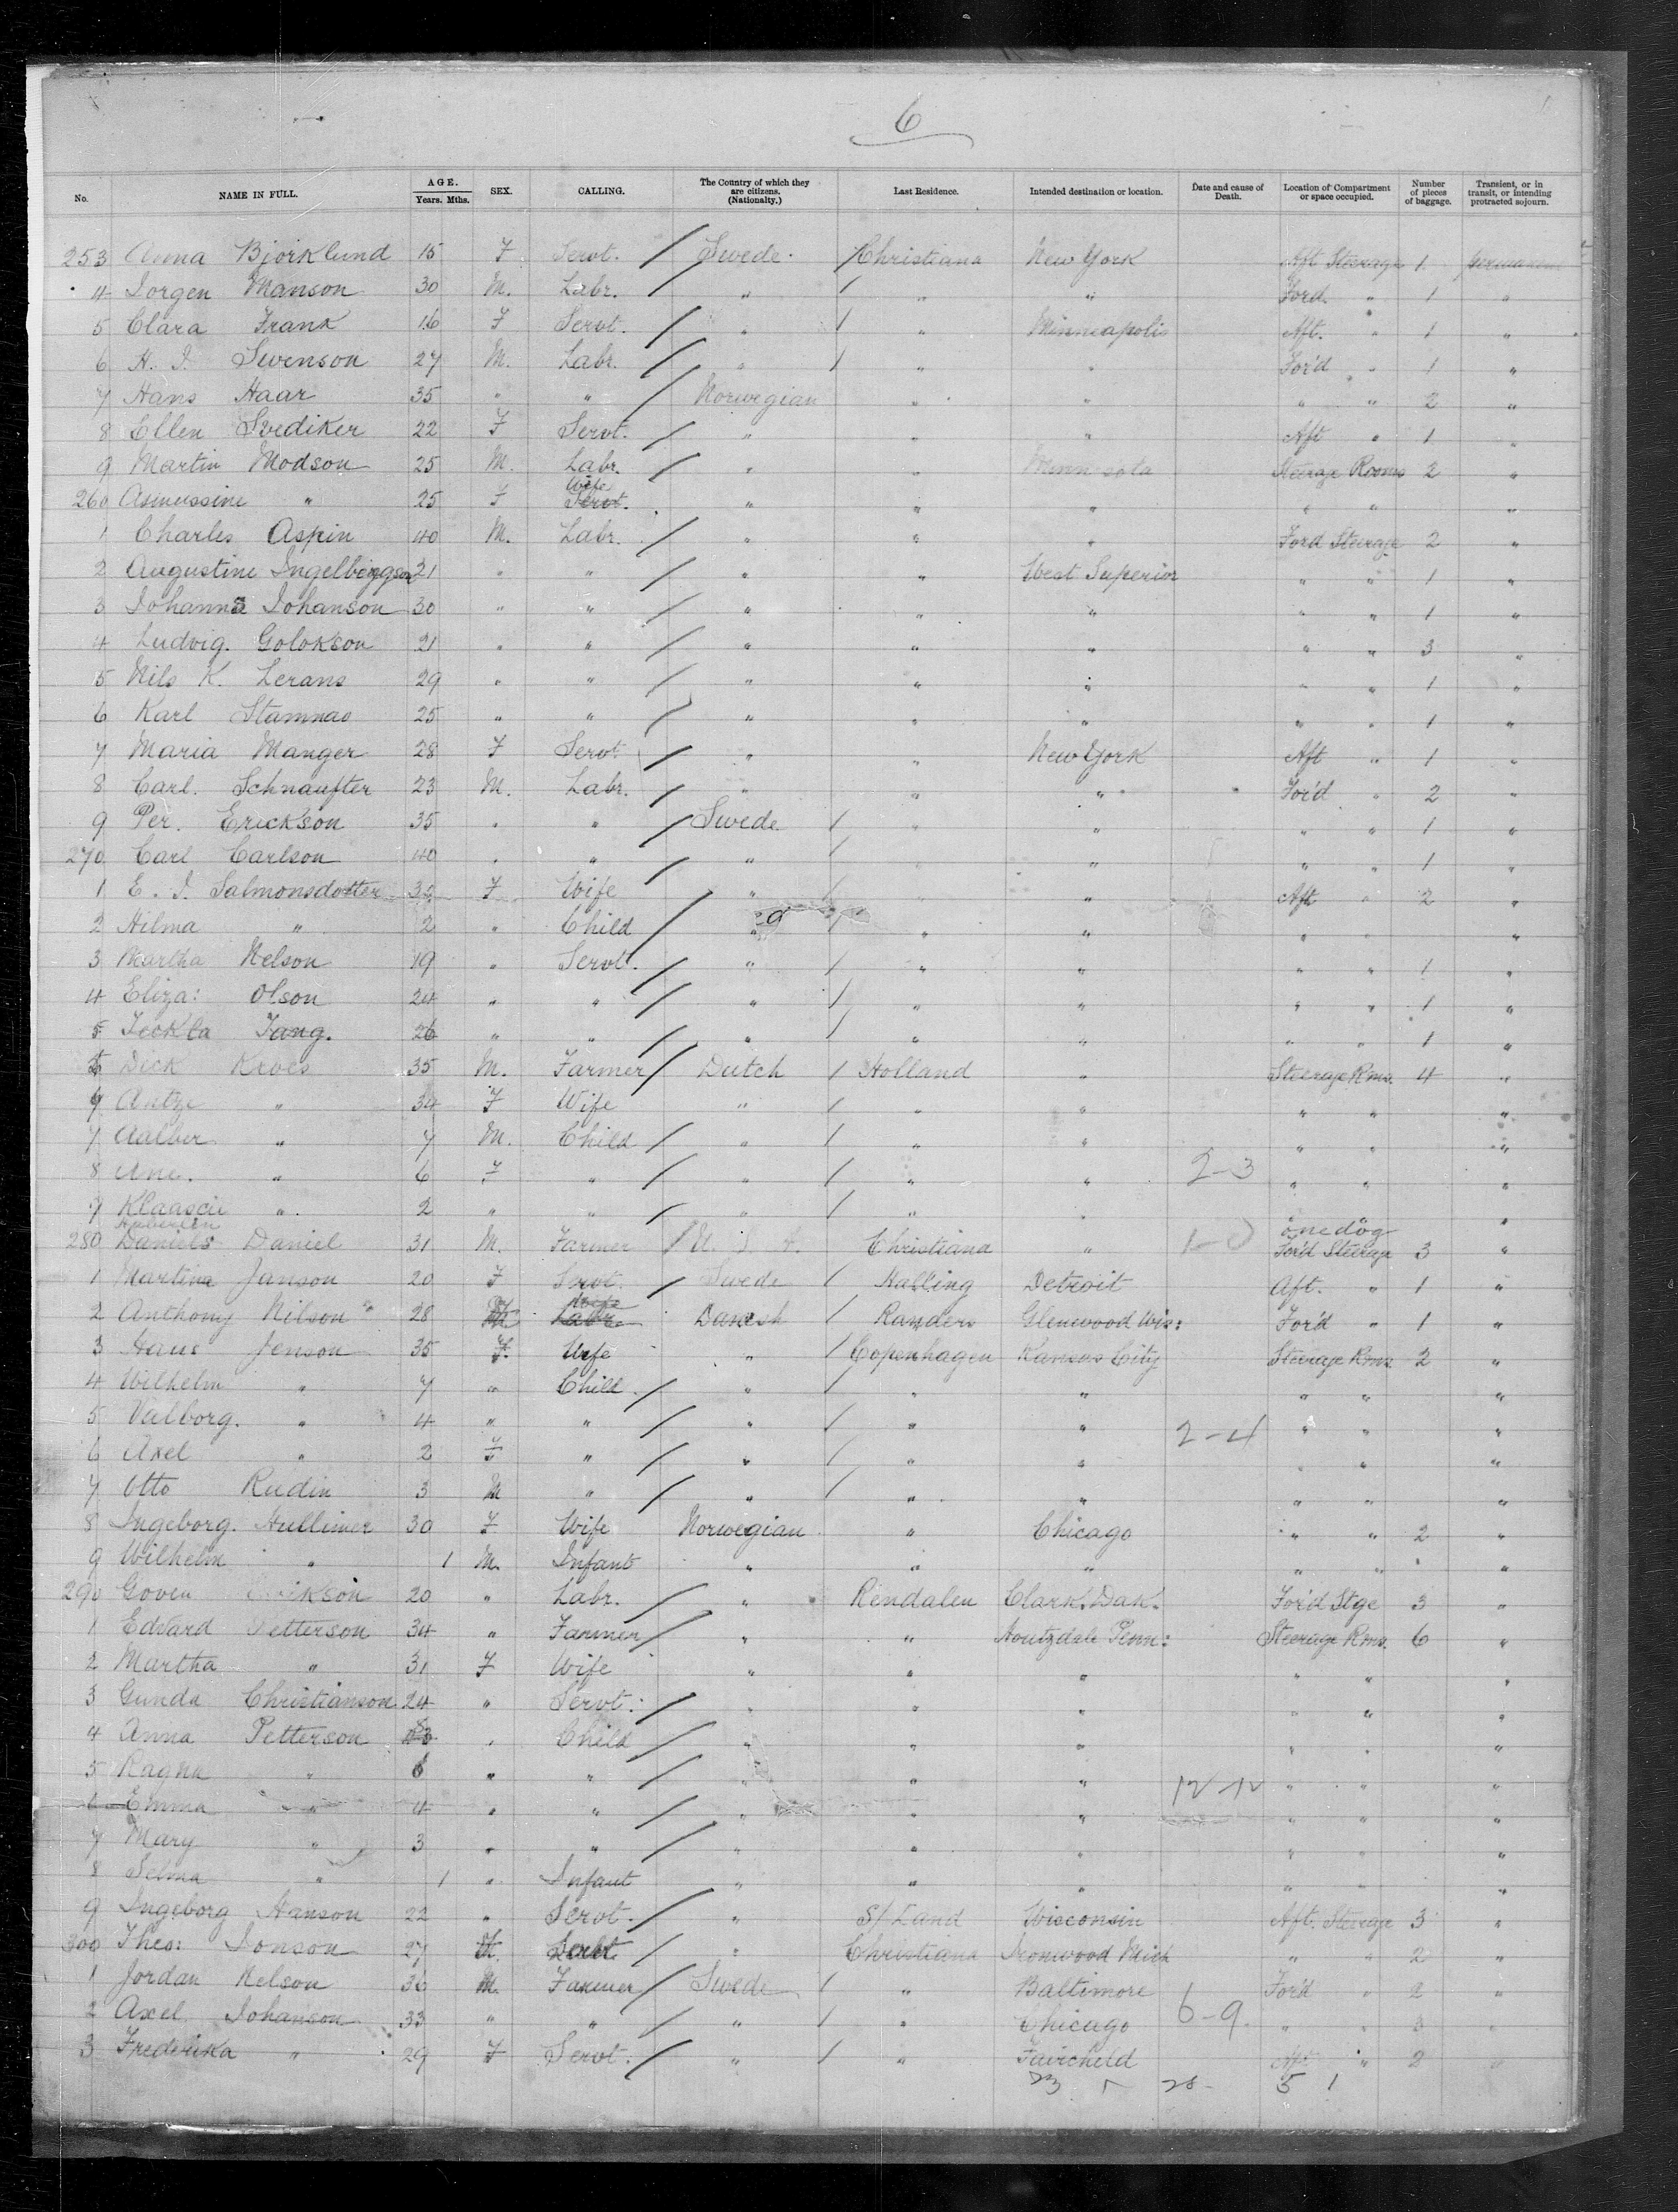 6
No. NAME IN FULL. AGE. Years. Mths. SEX. CALLING. The Country of which they are citizens. (Nationalty.) Last Residence. Intended destination or location. Date and cause of Death. Location of Compartment or space occupied. Number of pieces of baggage. Transient, or in transit, or intending protracted sojourn.
253 Anna Bjorklund 15 F Servt. Swede. Christiana New York Aft Steerage 1 permanent
4 Jorgen Manson 30 M. Labr. " " " Ford. " 1 "
5 Clara Frank 16 F Servt. " " Minneapolis Aft. " 1 "
6 H. J. Swenson 27 M. Labr. " " " For'd " 1 "
7 Hans Haar 35 " " Norwegian " " " " 2 "
8 Ellen Svediker 22 F Servt. " " " Aft " 1 "
9 Martin Modson 25 M. Labr. " " Minnesota Steerage Rooms 2 "
260 Asmussine " 25 F Wife Servt. " " " " " "
1 Charles Aspin 40 M. Labr. " " " Ford Steerage 2 "
2 Augustine Ingelbingson 21 " " " " West Superior " " 1 "
3 Johanns Johanson 30 " " " " " " " 1 "
4 Ludvig. Golokson 21 " " " " " " " 3 "
5 Nils K. Lerans 29 " " " " " " " 1 "
6 Karl Stamnas 25 " " " " " " " 1 "
7 Maria Manger 28 F Servt " " New York Aft " 1 "
8 Carl. Schnaufter 23 M. Labr. " " " For'd " 2 "
9 Per. Erickson 35 " " Swede " " " " 1 "
270 Carl Carlson 40 " " " " " " " 1 "
1 E. J. Salmonsdotter 35 F Wife " " " Aft " 2 "
2 Hilma " 2 " Child " " " " " "
3 Martha Nelson 19 " Servt. " " " " " 1 "
4 Eliza: Olson 24 " " " " " " " 1 "
5 Teckla Tang. 26 " " " " " " " 1 "
Dick 35 M. Farmer Dutch Holland " Steerage Rms. 4 "
Antze " 34 F Wife " " " " " "
7 Aalber " 7 M. Child " " " " " "
8 Ane. " 6 F " " " " 2-3 " " "
9 Klaascie " 2 " " " " " "
280 Daniels Daniel 31 M. Farmer U. S. A. Christiana " For'd Steerage 3 "
1 Martina Janson 20 F Servt. Swede Halling Detroit Aft. " 1 "
2 Anthony Nilson 28 Labr. Danish Randers Glenwood Wis: For'd " 1 "
3 Hans Jenson 35 F. Wife " Copenhagen Kansas City Steerage Rms 2 "
4 Wilhelm " 7 " Child " " " " " "
5 Valborg. " 4 " " " " " 2-4 " " "
6 Axel " 2 " " " " " " "
7 Otto Rudin 3 M " " " " " " "
8 Ingeborg. Hullimer 30 F Wife Norwegian " Chicago " " 2 "
9 Wilhelm " 1 M. Infant " " " " " "
290 Goven 20 " Labr. " Rendalen Clark. Dak. For'd Stge 3 "
1 Edvard Petterson 34 " Farmer " " Houtzdale Penn: Steerage Rms. 6 "
2 Martha " 31 F Wife " " " " " "
3 Gunda Christianson 24 " Servt: " " " " " "
4 Anna Petterson " Child " " " " " "
5 Ragna " 6 " " " " " 12-12 " " "
Emma " 4 " " " " " " " "
7 Mary " 3 " " " " " " " "
8 Selma " 1 " Infant " " " " " "
9 Ingeborg Hanson 22 " Servt. " S/Land Wisconsin Aft. Steerage 3 "
300 Theo: Jonson 27 " Christiana Ironwood Mich " " 2 "
1 Jordan Nelson 36 M. Farmer Swede " Baltimore For'd " 2 "
2 Axel Johanson 33 " " " " Chicago 6-9. " " 3 "
3 Frederika " 29 F Servt. " " Fairchild Aft " 2 "
5 1